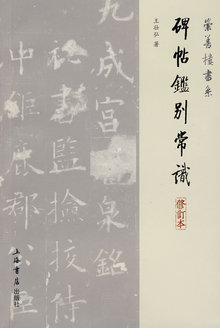 崇善樓書系
碑帖鑑別常識
修訂本
王壯弘 著
九成宮泉銘
祕書監撿挍侍
中鉅鹿郡公
上海書店出版社